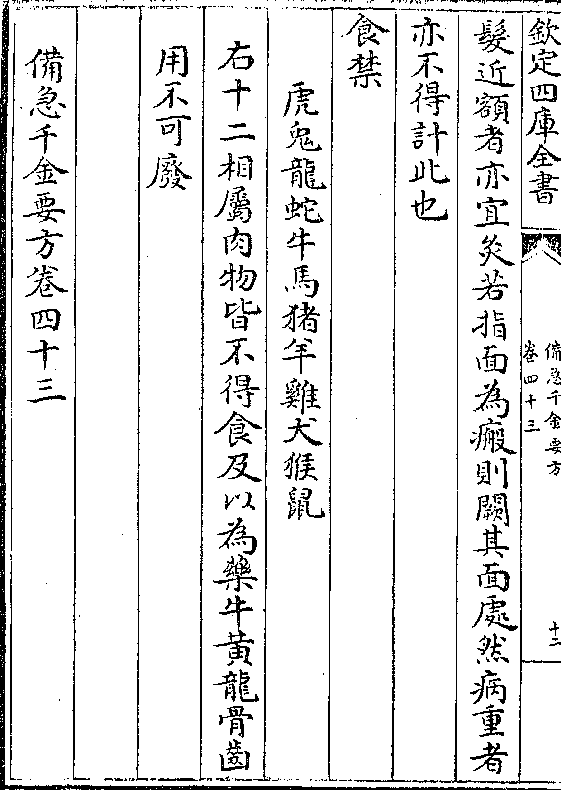 欽定四庫全書
備急千金要方
卷四十三
十二
髮近額者亦宜灸若指面為瘢則闕其面處然病重者
亦不得計此也
食禁
虎兔龍蛇牛馬猪羊雞犬猴鼠
右十二相屬肉物皆不得食及以為藥牛黄龍骨齒
用不可廢
備急千金要方卷四十三